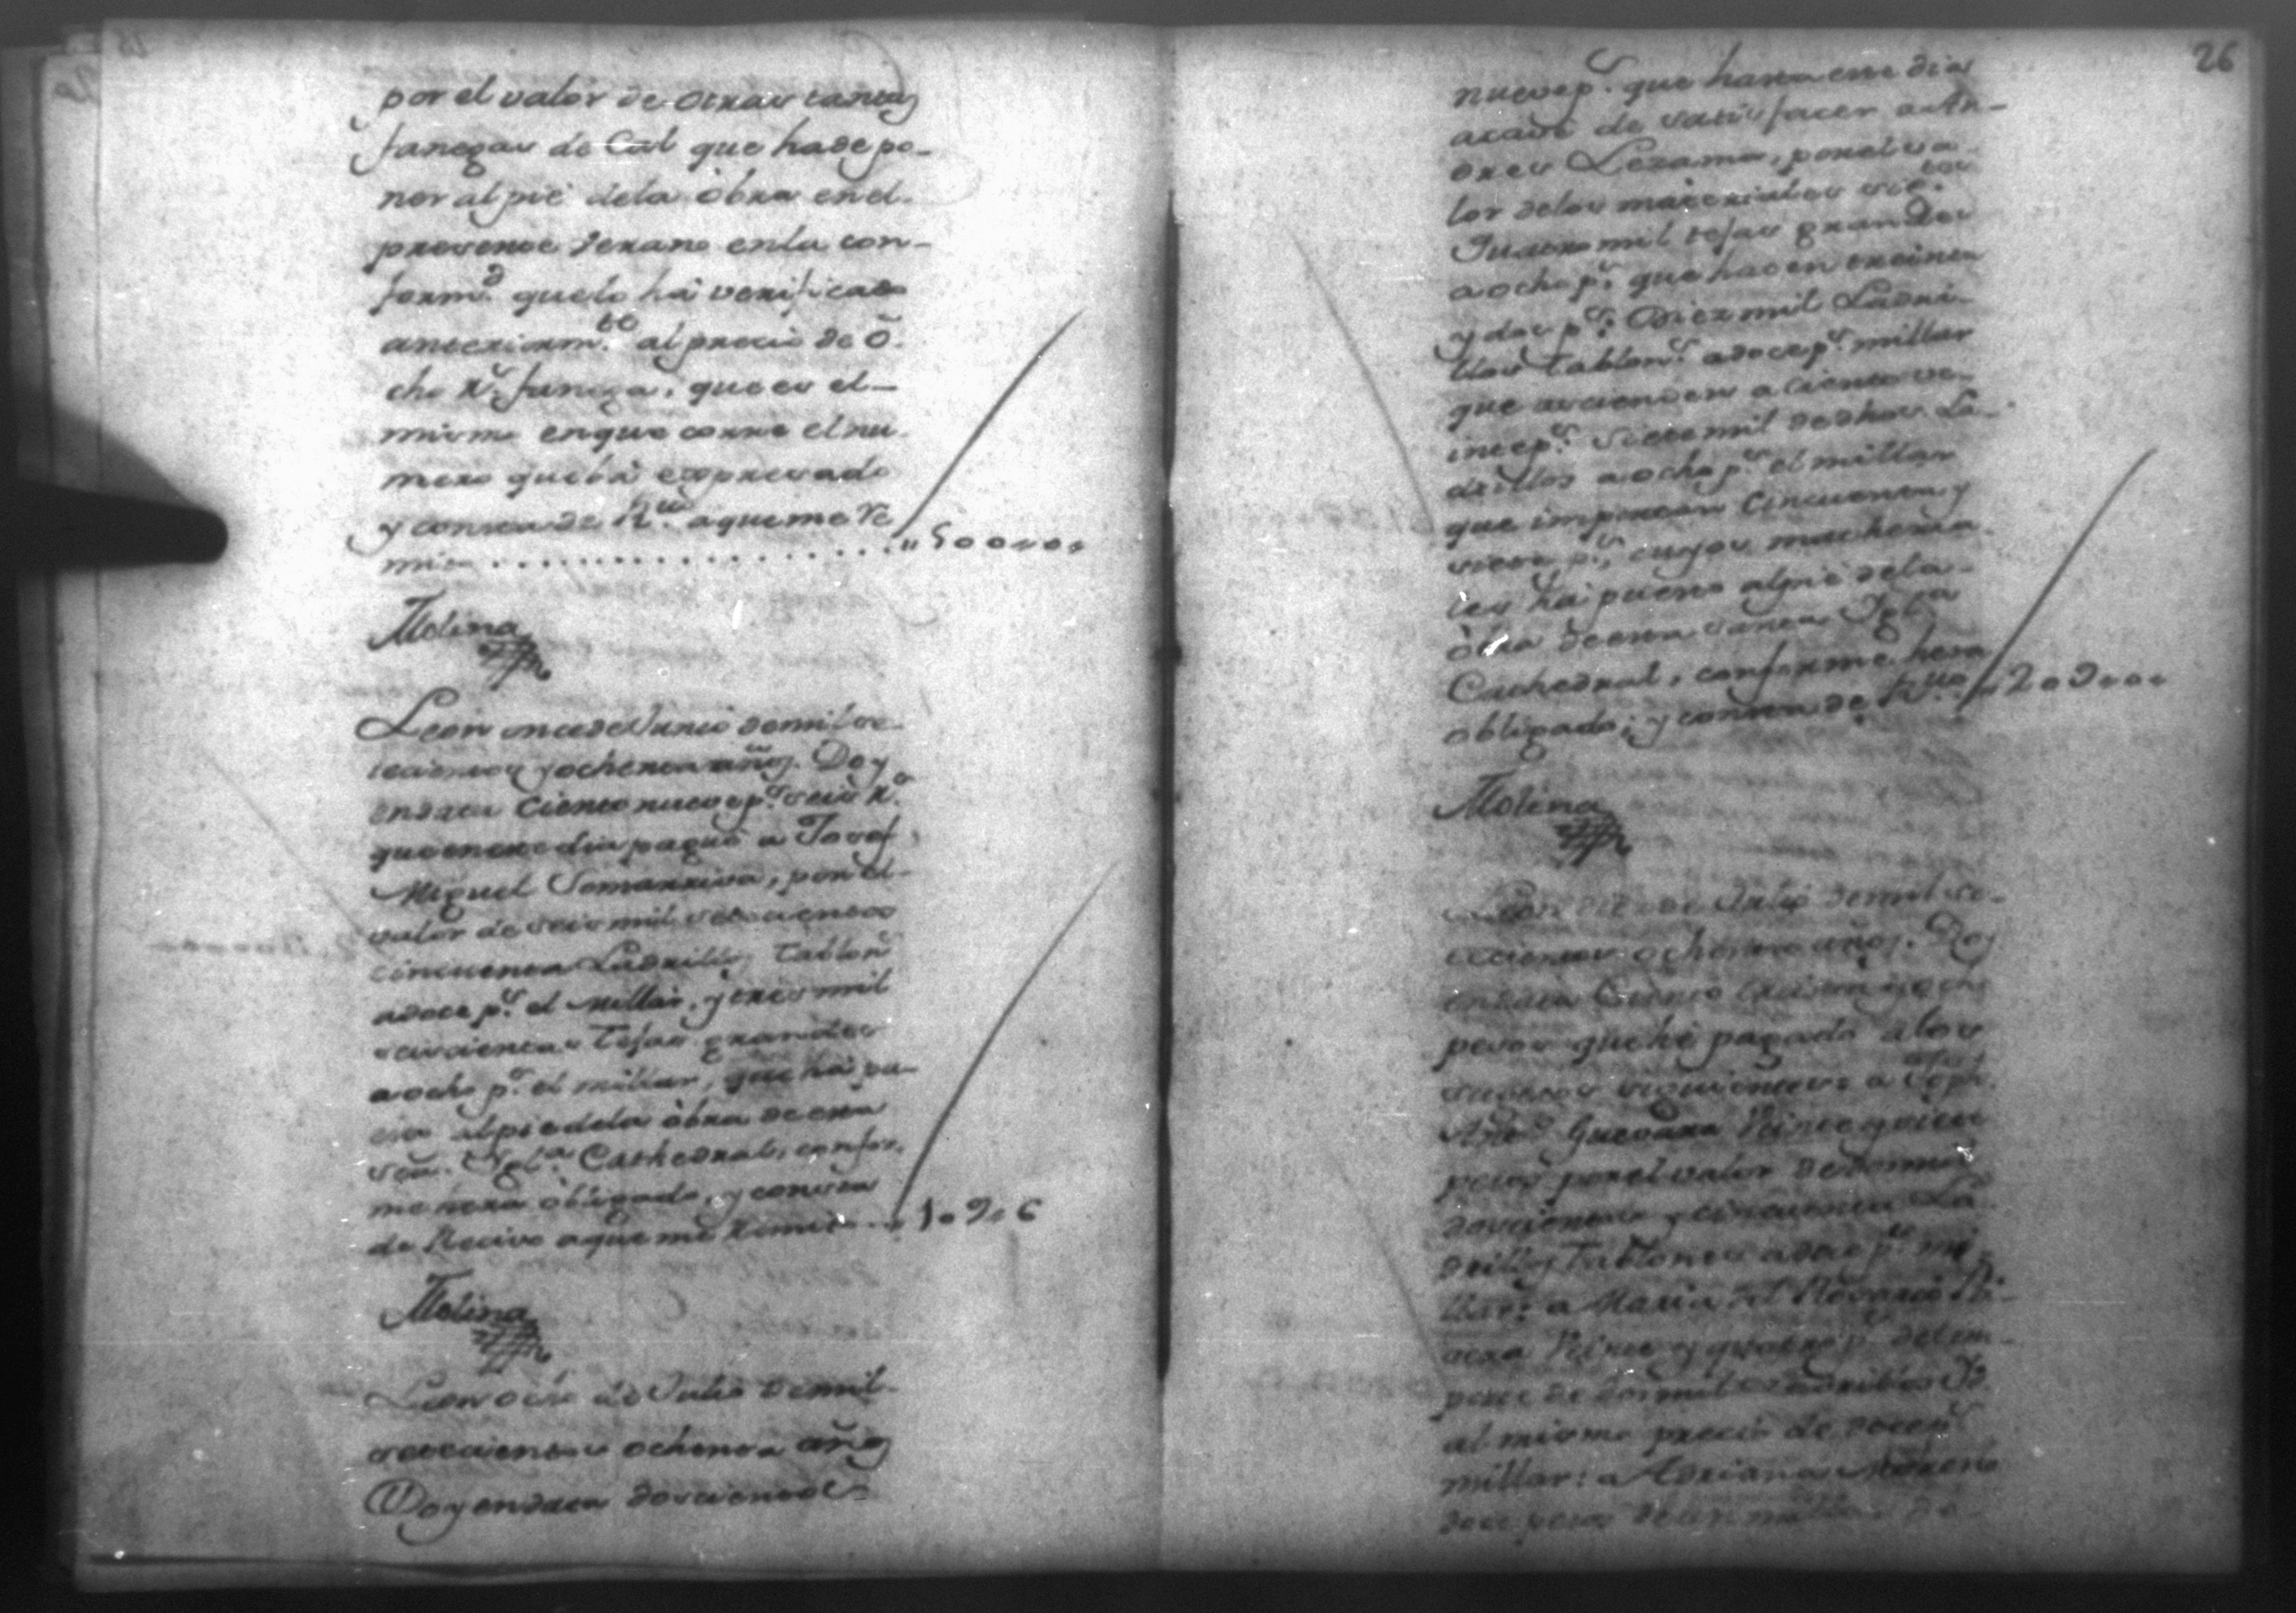 por el valor de otras tantas
fanegas de Cal que hade po-
ner al pie dela obra en el
presente Verano enla con-
formd. quelo há verificado
anteriormte. al precio de ô-
cho rs. fanega, que es el
mismo enque corre el nu-
mero quebá expresado
y consta de Rvo. aqueme re
mito ................ „500„0„
Molina
Leon once de Junio demil se-
tecientos y ochenta años. Doy
endata ciento nueve ps. seis rs.
que eneste dia pagué a Josef
Miguel Somarriva, por el
valor de seis mil setecientos
cincuenta Ladrillos Tablons.
adoce ps. el millar, y tres mil
seiscientas Tejas grandes
a ocho ps. el millar, que há pu-
esto alpie dela obra de esta
Sta. Igla. Cathedral, confor-
me hera obligado, y consta
de Recivo aque me Remito ... „109„6
Molina
Leon ocho de Julio demil
setecientos ochenta años
Doy endata doscientos
26
nueve ps. que hasta este dia
acavé de satisfacer a An-
dres Lezama, por el va-
lor delos materiales sigtes.
Quatro mil tejas grandes
a ocho ps. que hacen treinta
y dos ps.: Diez mil Ladri-
llos tablons. adoce ps. millar
que ascienden a ciento ve-
inte ps. Siete mil de dhos. La-
drillos a ocho ps. el millar
que importan cincuenta y
siete ps., cuyos matheria-
les há puesto alpie dela
obra de esta Santa Igla.
Cathedral, conforme hera
obligado; y consta de Rvo. „209„0„
Molina
Leon diez de Julio demil se-
tecientos ochenta años. Doy
endata Ciento treinta y ocho
pesos que he pagado alos
sugetos siguientes: a
Anto. Guevara Veinte y siete
pesos por el valor de dos mil
doscientos y cincuenta La-
drillos Tablones adoce ps. mi-
llar: a Maria del Rosario Ri-
vera Veinte y quatro ps. del im-
porte de dos mil Ladrillos Yd.
al mismo precio de doce ps.
millar: a Adriana Moreno
doce pesos de un millar de